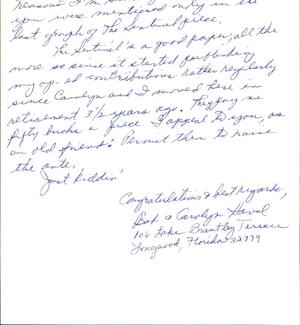 reasons I'm
you were mentioned only in the
last graph of The Sentinel piece.
The Sentinel's a good paper, all the
more so since it started publishing
my op-ed contributions rather regularly
since Carolyn and I moved here in
retirement 3 1/2 years ago. They pay me
fifty bucks a piece. I appeal to you, as
an old friend: Permit them to raise
the ante.
Just kiddin'
Congratulations & best regards,
Bob & Carolyn Havel
106 Lake Brantley Terrace
Longwood, Florida 32779